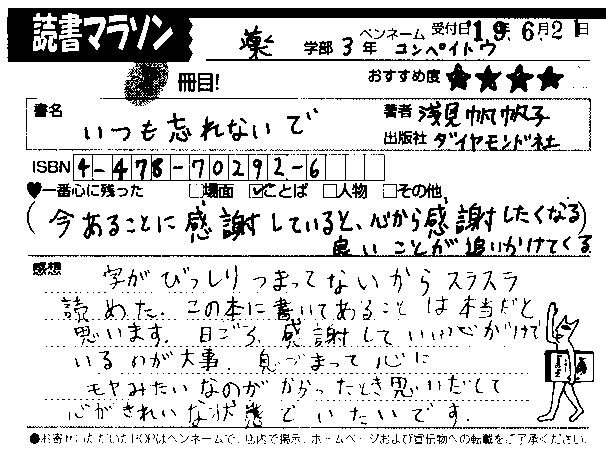 読書マラソン
薬 学部 3 年 ペンネーム コンペイトウ 受付日 '19年 6月 21日
冊目! おすすめ度 ★★★★
書名 いつも忘れないで
著者 浅見 帆帆子
出版社 ダイヤモンド社
ISBN 4-478-70292-6
♥一番心に残った □場面 ☑ことば □人物 □その他
(今あることに感謝していると、心から感謝したくなる
良いことが追いかけてくる)
感想 字がびっしりつまってないからスラスラ
読めた。この本に書いてあることは本当だと
思います。日ごろ、感謝して いい心がけで
いるのが大事。息づまって心に
モヤみたいなのがかかったとき思いだして
心がきれいな状態でいたいです。
●お寄せいただいたPOPはペンネームで、店内で掲示、ホームページおよび宣伝物への転載をご了承ください。